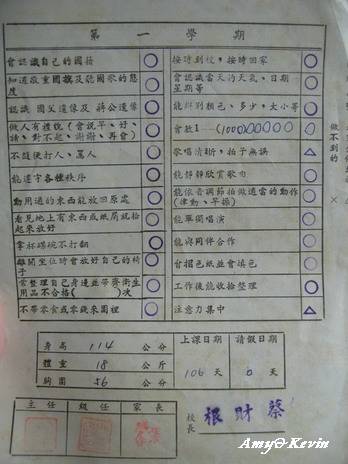 第一學期
會認識自己的國旗 ○
按時到校，按時回家 ○
知道敬重國旗及聽國歌的態度 ○
會認識當天的天氣、日期星期等 ○
認識 國父遺像及 蔣公遺像 ○
能辨別顏色、多少、大小等 ○
做人有禮貌（會說早、好、請、對不起、謝謝、再會） ○
會數1—(100)
不隨便打人、罵人 ○
歌唱清晰，拍子無誤 △
能遵守各種秩序 ○
能靜靜欣賞歌曲 ○
動用過的東西能放回原處 ○
能依音調節拍做適當的動作（律動、早操） ○
看見地上有東西或紙屑就拾起來放好 ○
能單獨唱演 ○
拿杯碟碗不打翻 ○
能與同伴合作 ○
離開坐位時會放好自己的椅子 ○
會摺色紙並會填色 ○
常整理自己身邊並帶齊衛生用品不合格( )次 ○
工作後能收拾整理 ○
不帶零食或零錢來園裡 ○
注意力集中 △
做不到的 ×
身高 114 公分
上課日期
請假日期
體重 18 公斤
106天
0天
胸圍 56 公分
主任
級任
家長
校長 蔡財根
Amy@Kevin